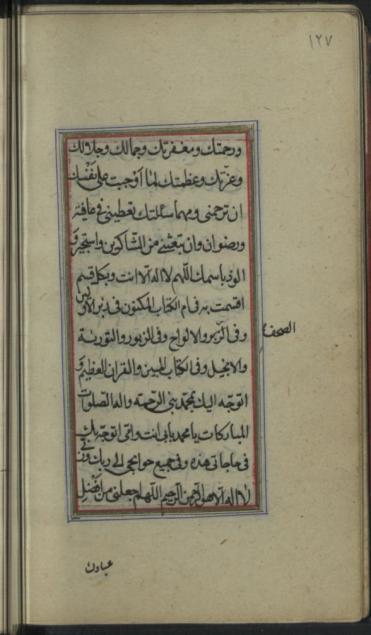 ١٢٧
ورحمتك ومغفرتك وجمالك وجلالك
وعزتك وعظمتك لما اوجبت على نفسك
ان ترحمنى ومهما سئلتك تعطينى فى عافية
ورضوان وان تبعثنى من الشاكرين واستجير و
الوذ باسمك اللهم لا اله الا انت وبكل قسم
اقسمت به فى ام الكتاب المكنون فى زبر الاولين
وفى الزبر والالواح وفى الزبور والتورية
الصحف
والانجيل وفى الكتاب المبين والقران العظيم و
اتوجه اليك بمحمد نبى الرحمة واله الصلوات
المباركات يا محمد بابى انت وامى اتوجه بك
فى حاجاتى هذه وفى جميع حوائجى الى ربك وربى
لا اله الا هو الرحمن الرحيم اللهم اجعلنى من افضل
عبادك